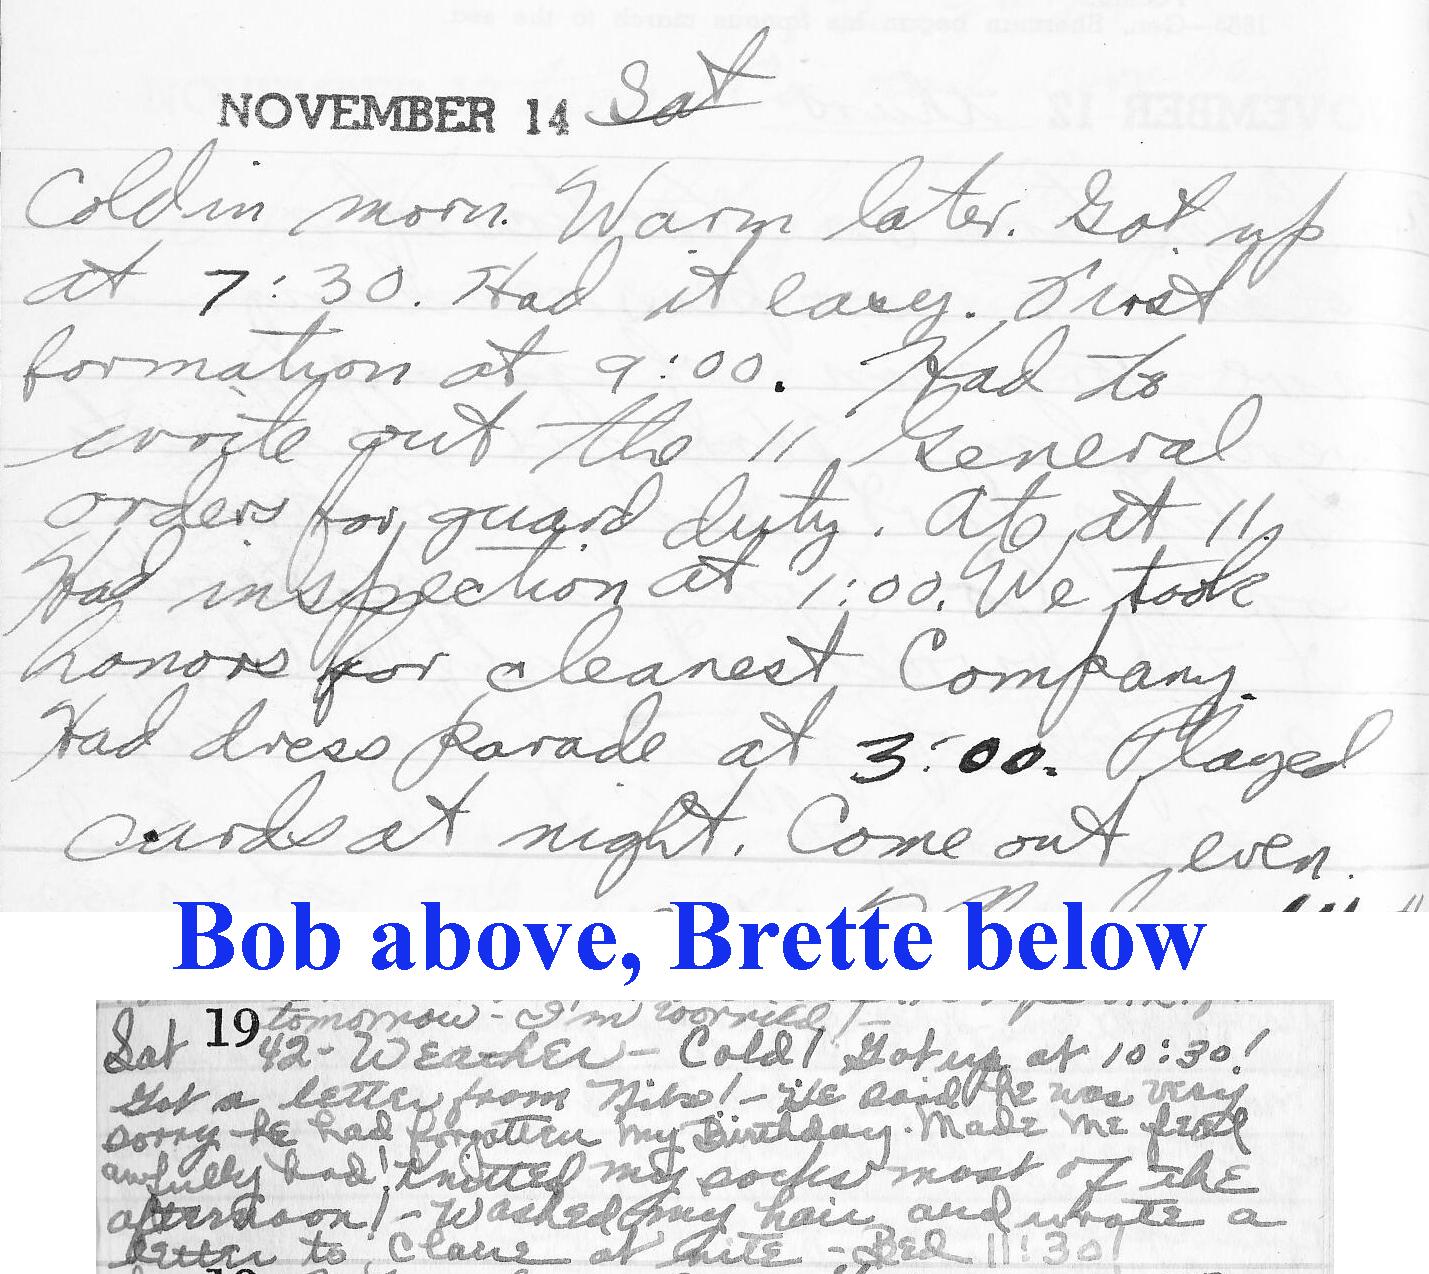 NOVEMBER 14 Sat
Cold in morn. Warm later. Got up
at 7:30. Had it easy. First
formation at 9:00. Had to
write out the 11 General
orders for guard duty. Ate at 11.
Had inspection at 1:00. We took
honors for cleanest Company.
Had dress parade at 3:00. Played
cards at night. Come out even.
Bob above, Brette below
tomorrow - I'm worried! -
Sat 19 42 - Weather - Cold! Got up at 10:30!
Got a letter from ! - He said he was very
sorry he had forgotten my Birthday. Made me feel
awfully bad! Knitted my socks most of the
afternoon! - Washed my hair and wrote a
letter to Claire at nite - Bed 11:30!